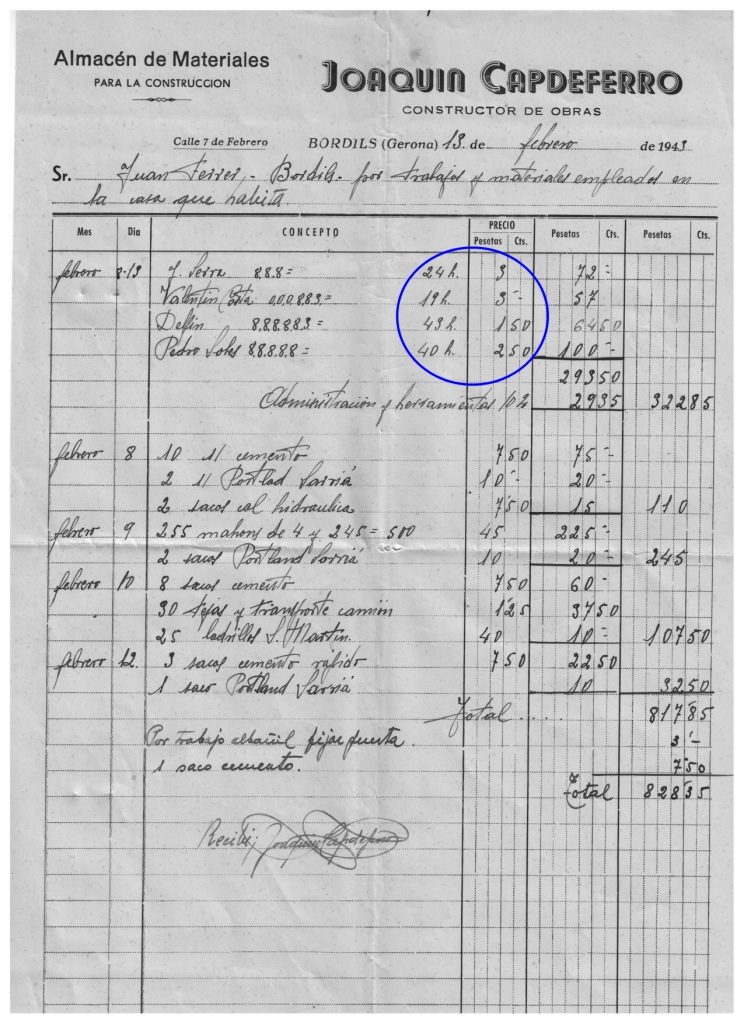 Almacén de Materiales
PARA LA CONSTRUCCION
JOAQUIN CAPDEFERRO
CONSTRUCTOR DE OBRAS
Calle 7 de Febrero BORDILS (Gerona) 13 de febrero de 1943
Sr. Juan Ferrer,- Bordils- por trabajos y materiales empleados en
la casa que habita.
Mes Dia CONCEPTO PRECIO Pesetas Cts. Pesetas Cts. Pesetas Cts.
febrero 8-13 J. Serra 8.8.8= 24 h. 3 72-
Valentin Costa 0.0.0.8.8.3= 19 h. 3- 57
Delfin 8.8.8.8.8.3= 43 h. 1 50 64 50
Pedro Soles 8.8.8.8.8= 40 h. 2 50 100-
293 50
Administración y herramientas 10% 29 35 322 85
febrero 8 10 s/ cemento 7 50 75-
2 s/ Portlad Sarriá 10- 20-
2 sacos cal hidraulica 7'50 15 110
febrero 9 255 mahons de 4 y 245 = 500 45 225-
2 sacos Portland Sarriá 10 20- 245
febrero 10 8 sacos cemento 7 50 60-
30 tejas y transporte camión 1'25 37 50
25 ladrillos S. Martin. 40 10- 107 50
febrero 12. 3 sacos cemento rápido 7 50 22 50
1 saco Portland Sarriá 10 32 50
Total .... 817'85
Por trabajo albañil fijar puerta. 3'-
1 saco cemento. 7'50
Total 828'35
Recibí; Joaquin Capdeferro